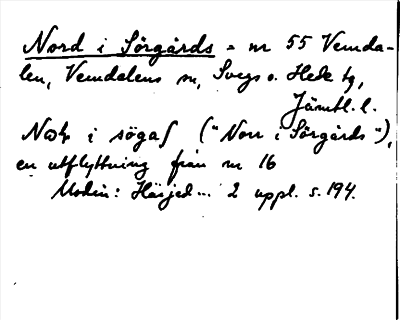 Nord i Sörgårds = nr 55 Vemda-
len, Vemdalens sn, Svegs o. Hede tg,
Jämtl. l.
i söga ("Norr i Sörgårds"),
en utflyttning från nr 16
Modin: Härjed... 2 uppl. s. 194.